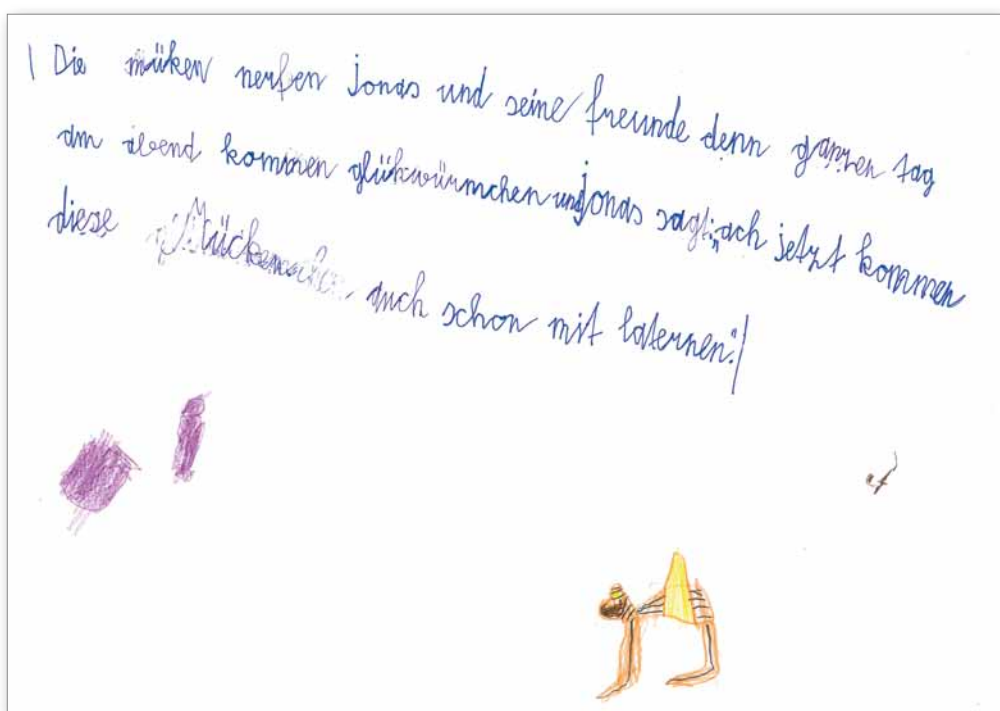 Die müken nerfen jonas und seine freunde denn ganzen tag
am abend kommen glükwürmchen und jonas sagt: „ach jetzt kommen
diese Mücken auch schon mit laternen."